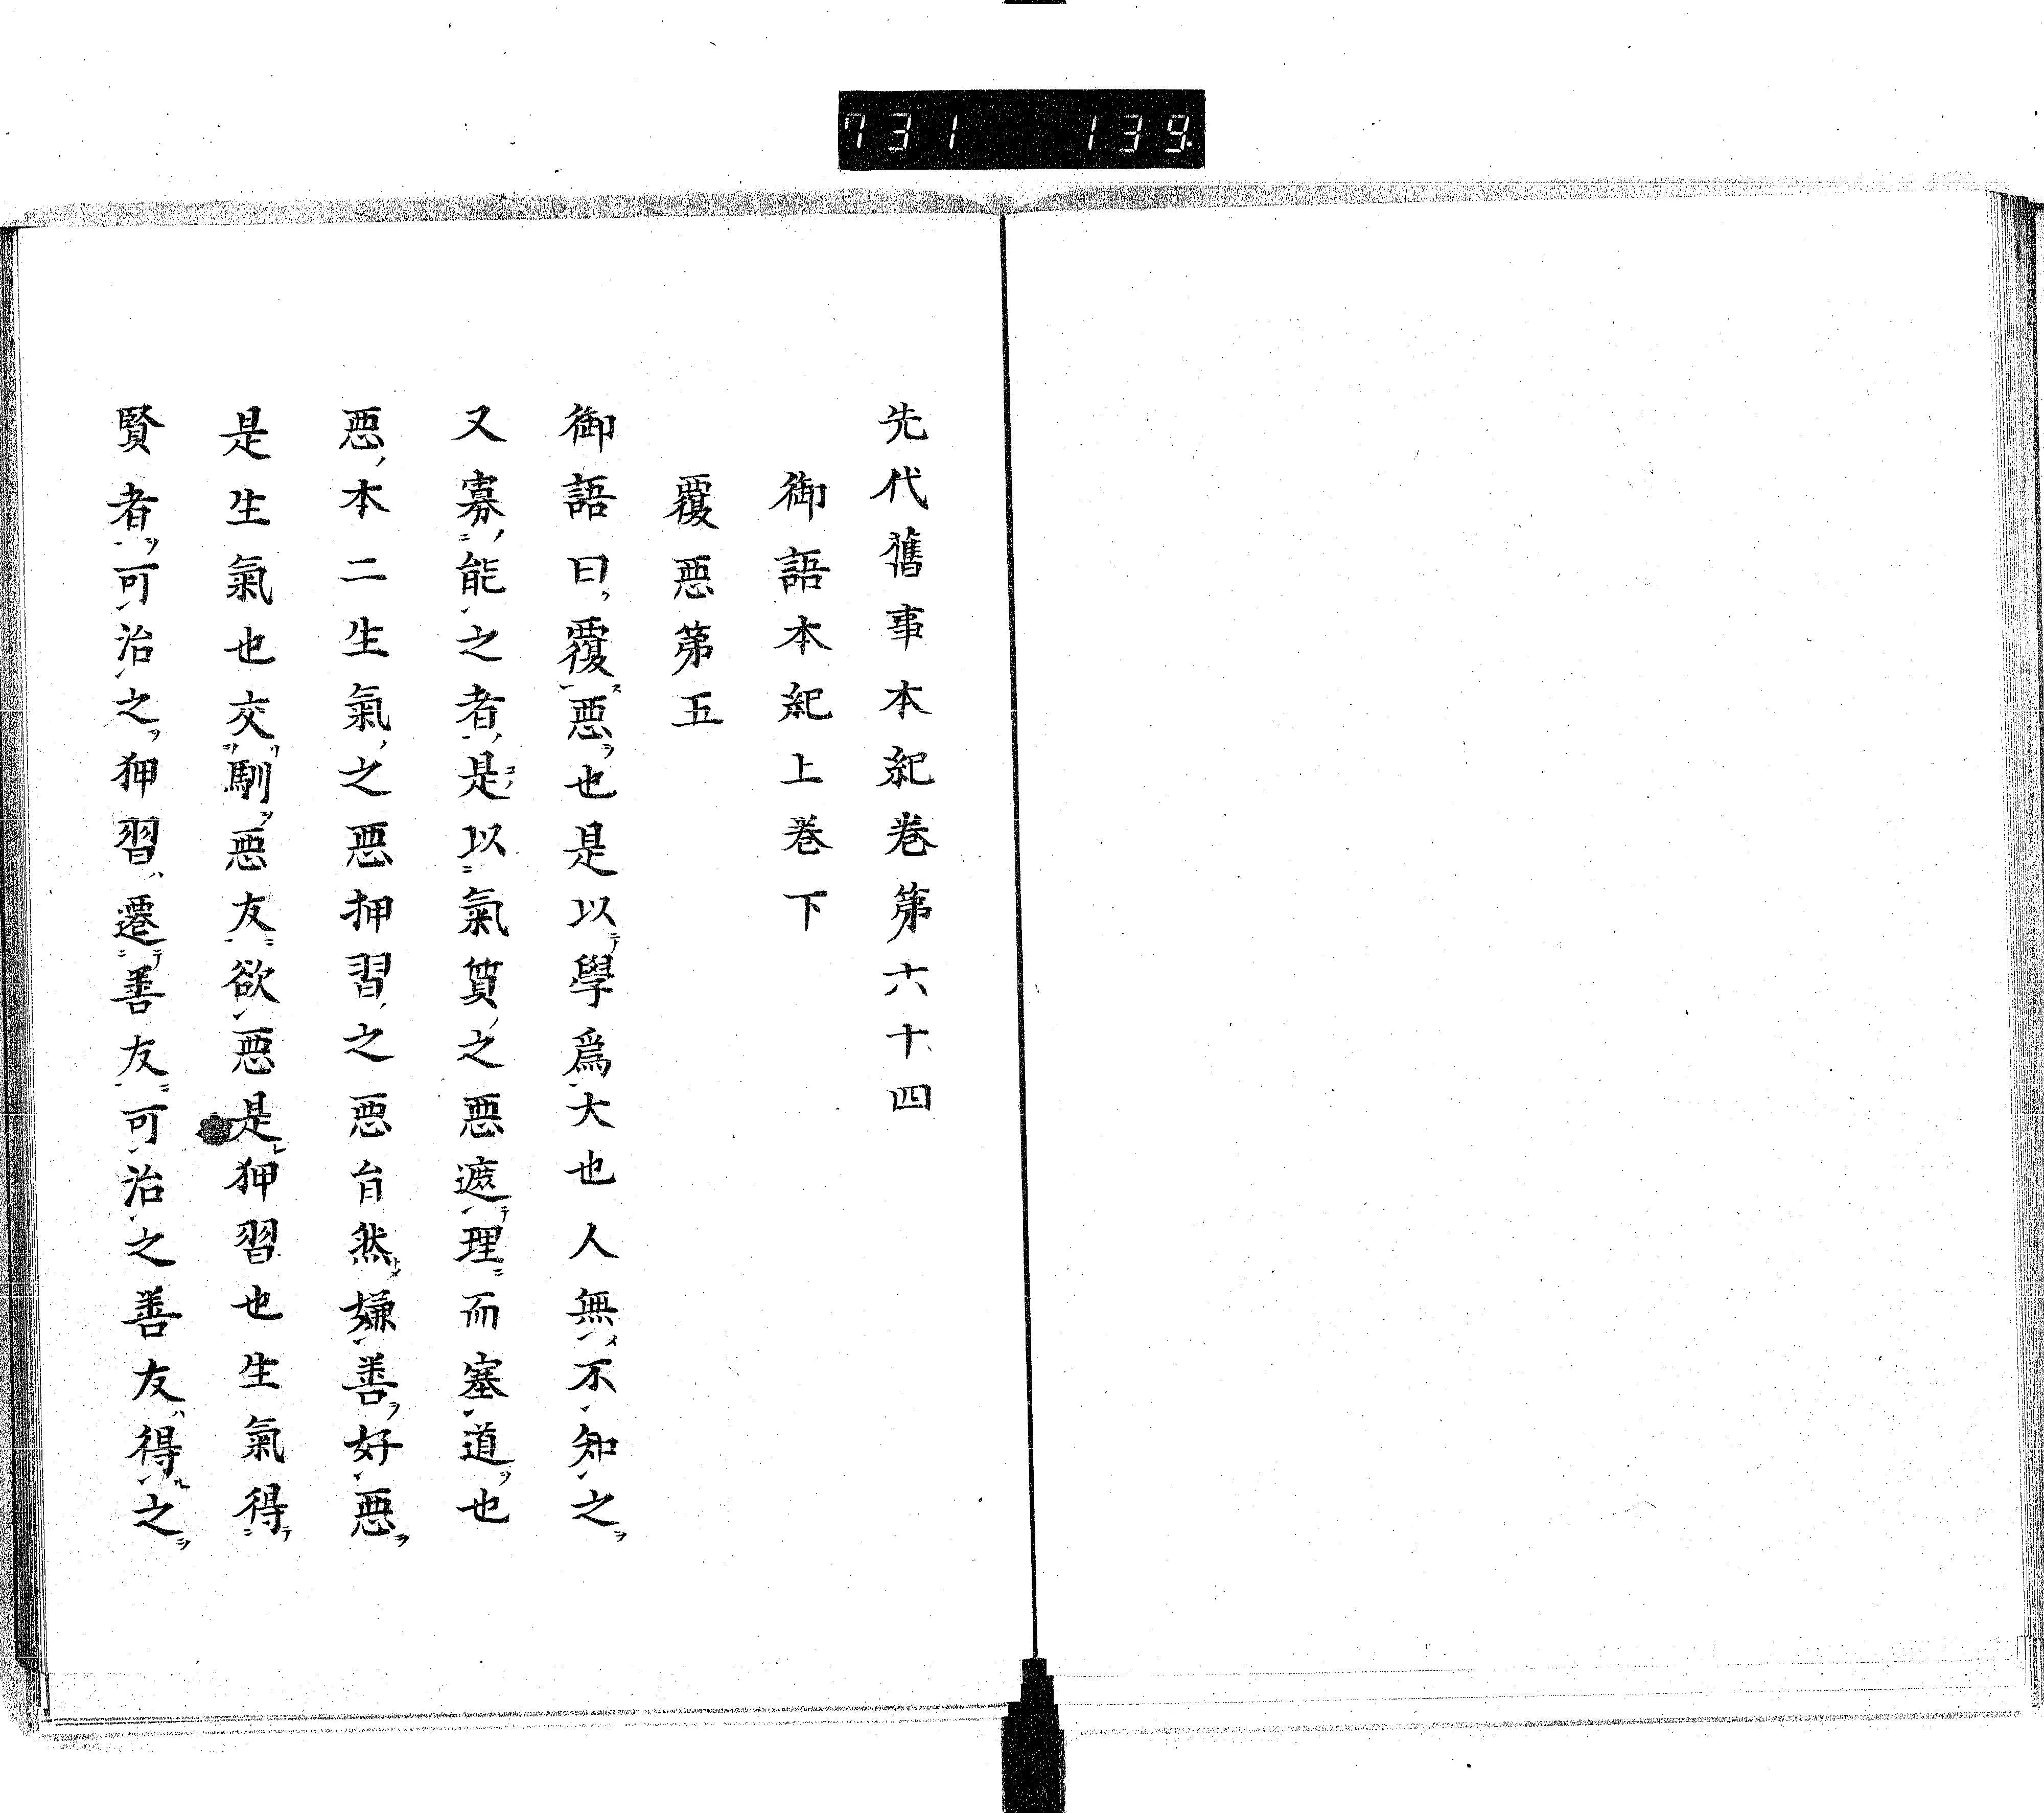 731 139
先代舊事本紀巻第六十四
御語本紀上巻下
覆惡第五
御語曰覆惡也是以學爲大也人無不知之
又寡能之者是以氣質之惡遮理而塞道也
惡本二生氣之惡狎習之惡自然嫌善好惡
是生氣也交馴惡友欲惡是狎習也生氣得
賢者可治之狎習遷善友可治之善友得之